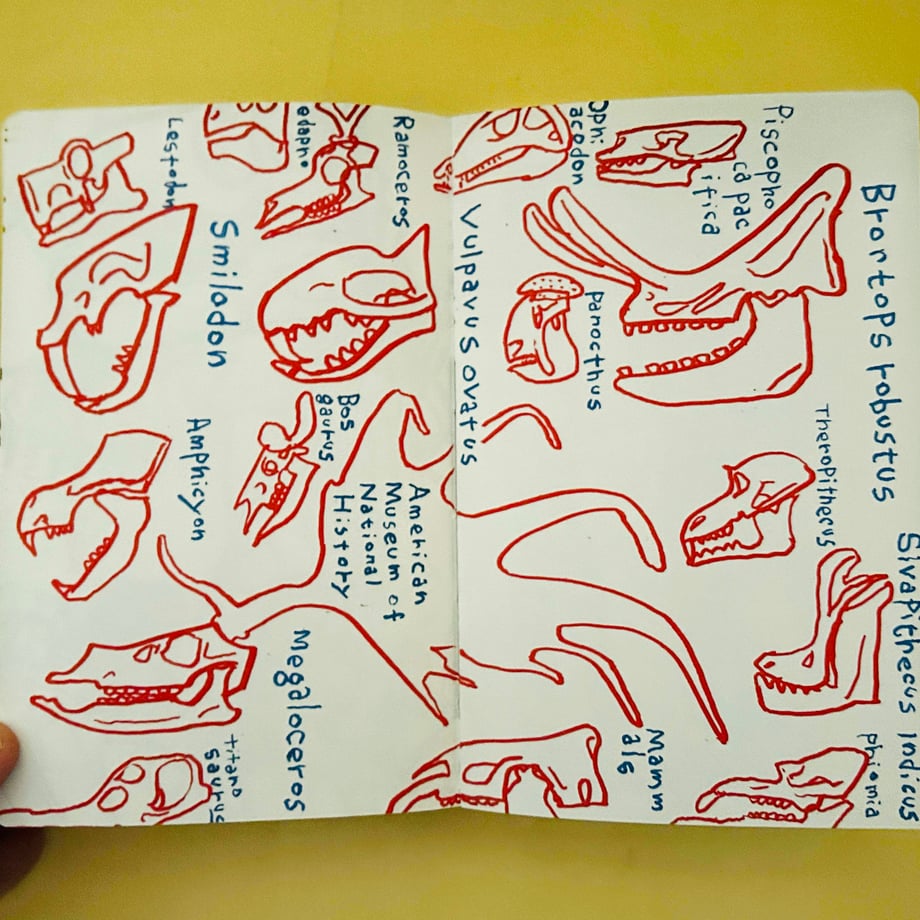 Lestodon
edapho
Ramoceros
Smilodon
Bos
gaurus
Amphicyon
American
Museum of
National
History
Megaloceros
titano
saurus
Ophi
acodon
Piscopho
ca pac
ifica
Brontops robustus
Vulpavus ovatus
panocthus
Theropithecus
Sivapithecus indicus
Mamm
als
phiomia